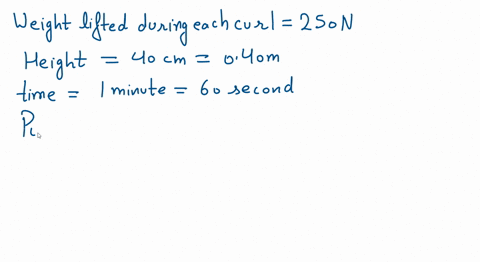 Weight lifted during each curl = 250N
Height = 40 cm = 0.40m
time = 1 minute = 60 second